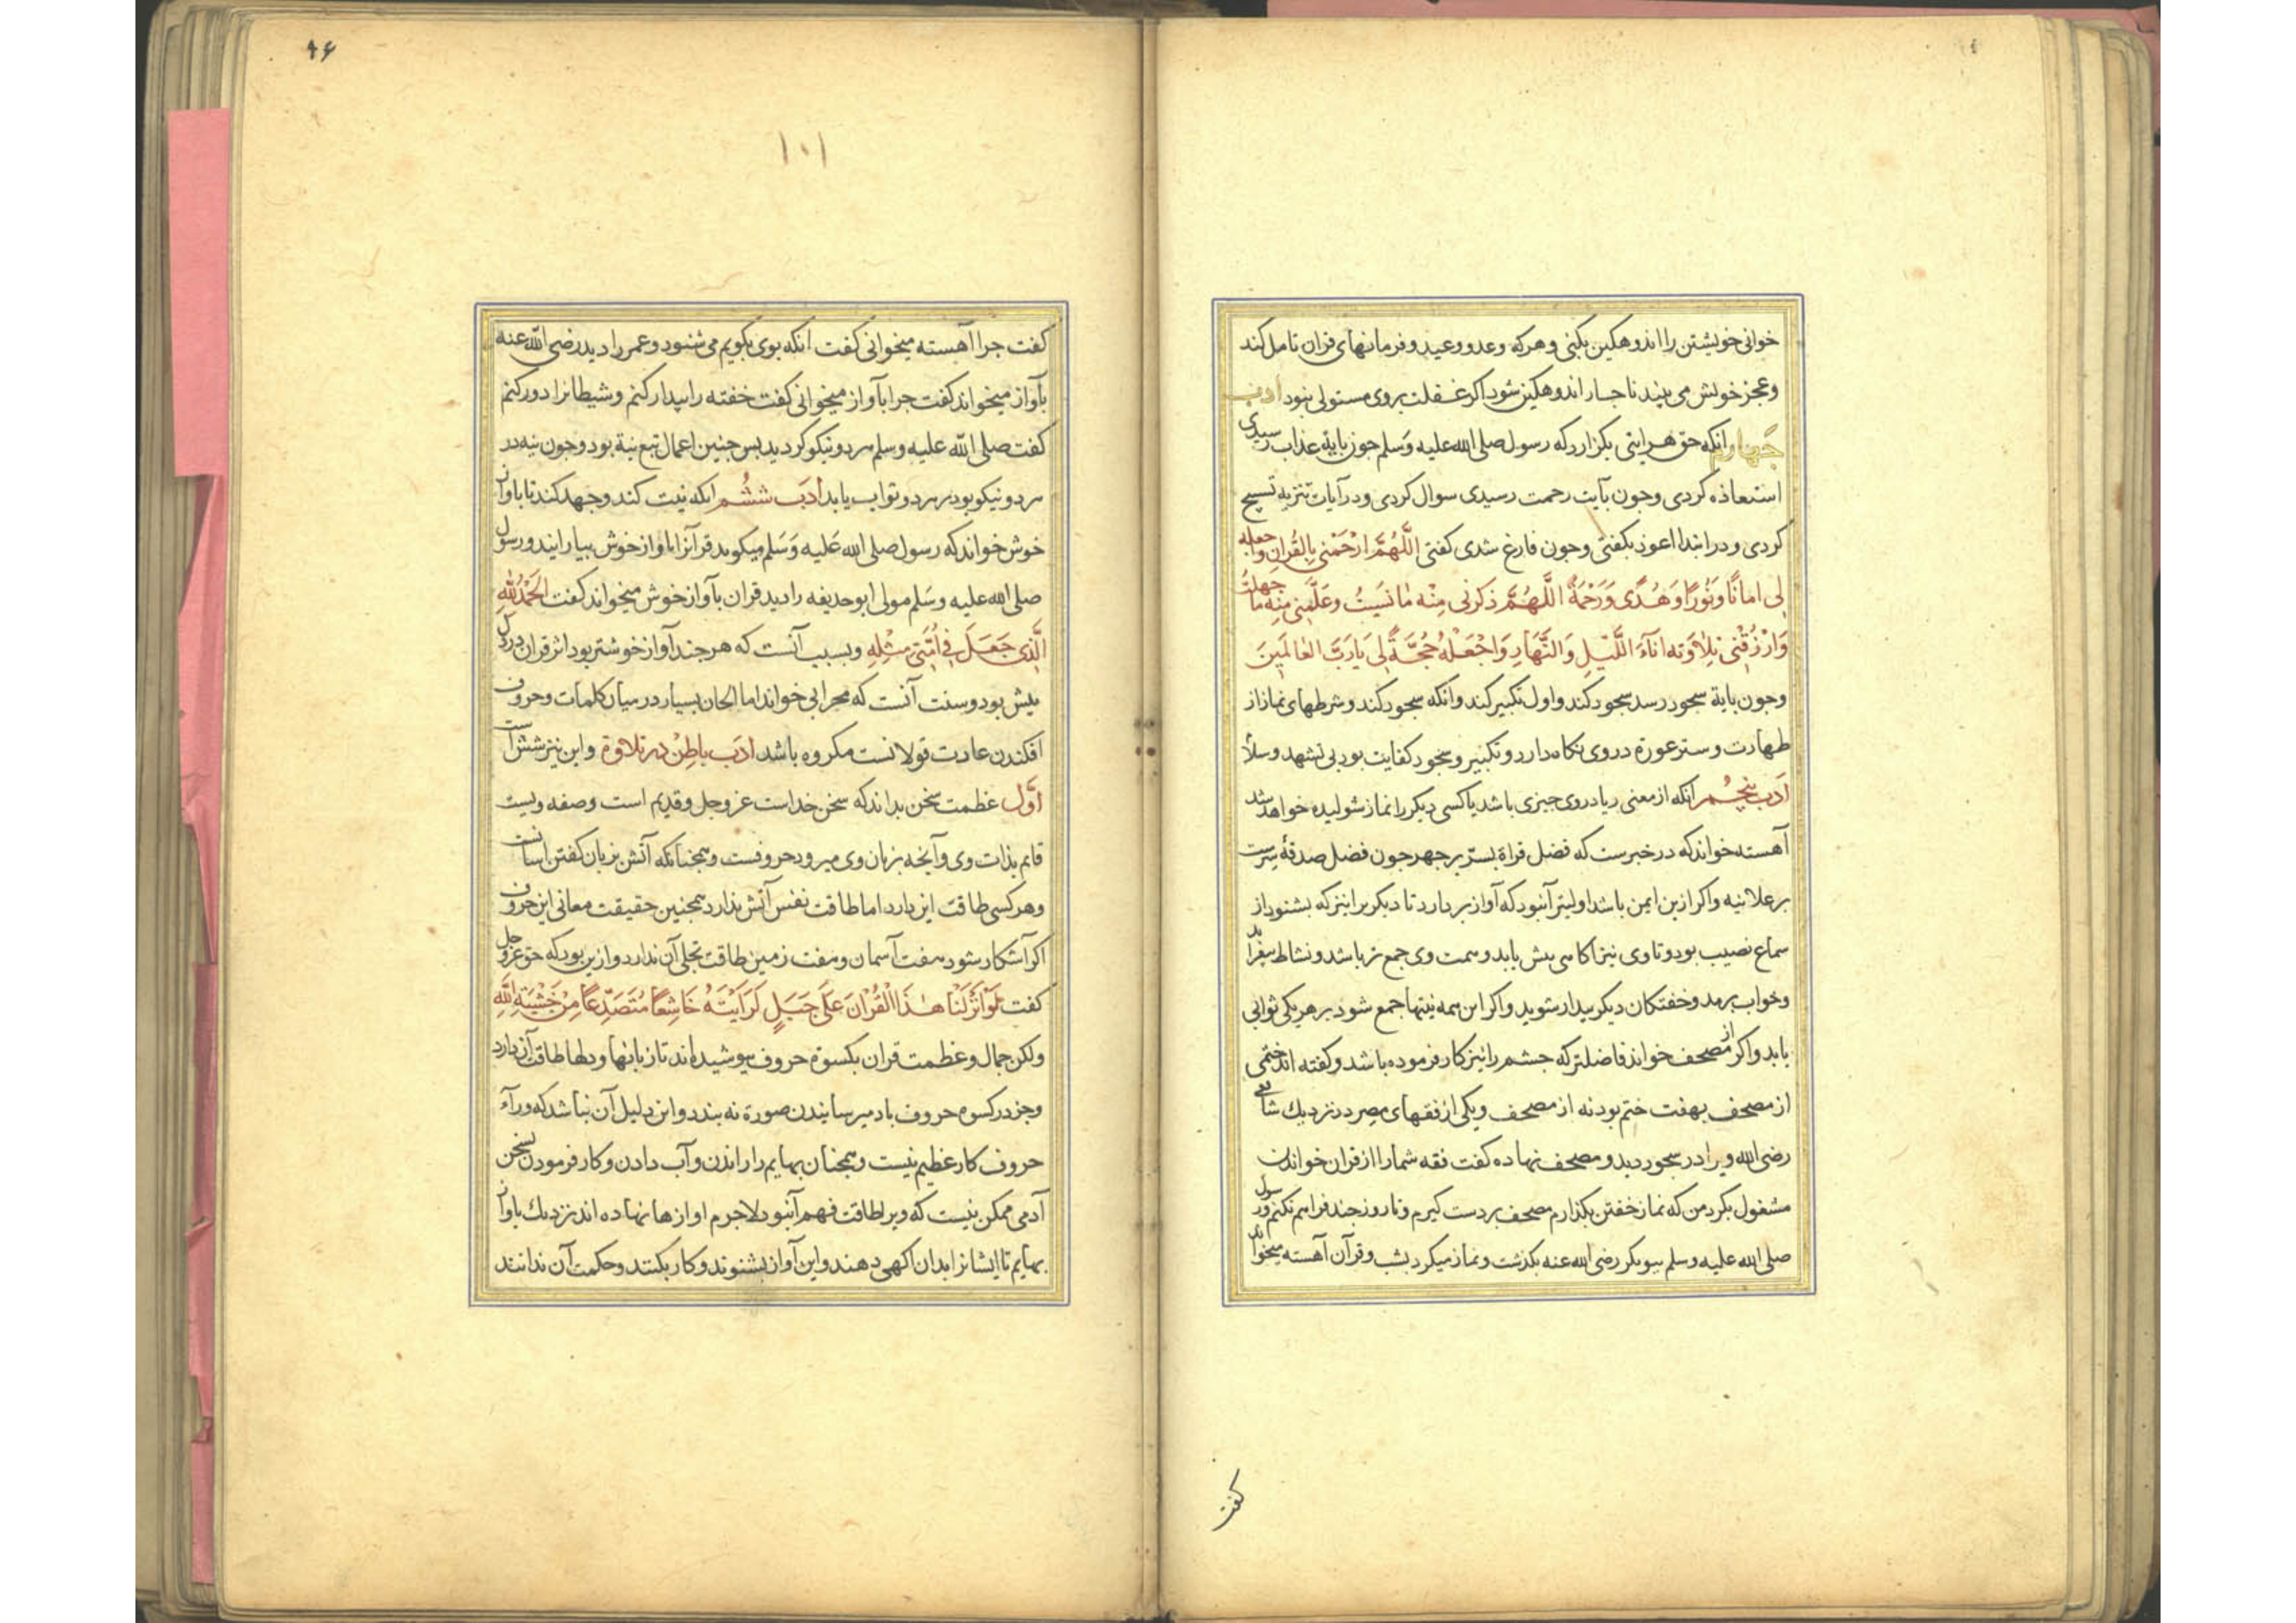 خوانی خویشتن را اندوهکین بکنی و هرکه وعد و وعید و فرمانهای قران تامل کند
و عجز خویش می بیند ناجار اندوهکین شود اکر غفلت بروی مستولی نبود ادب
جهارم انکه حق هر ایتی بکزارد که رسول صلی الله علیه وسلم جون بایة عذاب رسیدی
استعاذه کردی وجون بآیت رحمت رسیدی سوال کردی ودر آیات تنزیه تسبیح
کردی و در ابتدا اعوذ بکفتی وجون فارغ شدی کفتی اللَّهُمَّ ارْحَمْنی بِالقُرانِ واجعله
لی امانًا وَنُورًا وَهُدًی وَرَحْمَةً اللَّهُمَّ ذکرنی مِنْه مٰا نَسَیتُ وعَلِّمنی مِنه ما جهلتُ
وَارْزُقْنی تِلاٰوَته اناٰءَ اللَّیْلِ وَالنَّهارِ وَاجْعَلْهُ حُجَّةً لی یَا رَبَّ العٰالَمِینَ
وجون بایة سجود رسد سجود کند واول تکبیر کند وانکه سجود کند وشرطهای نماز از
طهارت وستر عورة در وی نکاه دارد و تکبیر و سجود کفایت بود بی تشهد وسلا
ادَب پنجُم انکه از معنی ریا در وی جیزی باشد یا کسی دیکر را نماز شولیده خواهد شد
آهسته خواند که در خبرست که فضل قراة بسرّ بر جهر جون فضل صدقهٔ سرست
بر علانیه واکر ازین ایمن باشد اولیتر آنبود که آواز بردارد تا دیکر برا نیز که بشنود از
سماع نصیب بود و تا وی نیز اکاهی بیش یابد وهمت وی جمع تر باشد و نشاط بیفزاید
وخواب برمد و خفتکان دیکر بیدار شوید واکر این همه نیتها جمع شود بر هر یکی ثوابی
یابد واکر از مصحف خواند فاضلتر که جشم را نیز کار فرموده باشد وکفته اند ختمی
از مصحف بهفت ختم بود نه از مصحف ویکی از فقهای مصر در نزدیك شافعی
رضی الله ویرا در سجود دید و مصحف نهاده کفت فقه شما را از قران خواندن
مشغول بکرد من که نماز خفتن بکذارم مصحف بر دست کیرم و تا روز جند فراهم نکنم ورسول
صلی الله علیه وسلم ببوبکر رضی الله عنه بکذشت ونماز میکرد بشب وقرآن آهسته میخواند
کفت
۹۶
۱۰۱
کفت جرا آهسته میخوانی کفت انکه بوی بکویم می شنود وعمر را دید رضی الله عنه
بآواز میخواند کفت جرا بآواز میخوانی کفت خفته را بیدار کنم وشیطانرا دور کنم
کفت صلی الله علیه وسلم هر دو نیکو کردید بس جنین اعمال تبع نیة بود وجون نیه در
هر دو نیکو بود بر هر دو ثواب یابد ادَب ششُم انکه نیت کند وجهد کند تا باواز
خوش خواند که رسول صلی الله عَلیه وَسَلم میکوید قرآنرا باواز خوش بیارایند ورسول
صلی الله علیه وسَلم مولی ابو حذیفه را دید قران بآواز خوش میخواند کفت الحَمْدُ للهِ
الَّذی جَعَلَ فی اُمَّتی مِثْلِهِ وبسبب آنست که هرجند آواز خوشتر بود اثر قران در دل
بیش بود وسنت آنست که محرابی خواند اما الحان بسیار در میان کلمات وحروف
افکندن عادت قولانست مکروه باشد ادَب باطِنْ در تلاوة واین نیز شش است
اوَّل عظمت سخن بداند که سخن خداست عز وجل وقدیم است وصفه ویست
قایم بذات وی وآنجه بر زبان وی میرود حروفست وهمجنانکه آتش بزبان کفتن اسانست
وهر کسی طاقت این دارد اما طاقت نفس آتش ندارد همجنین حقیقت معانی این حروف
اکر آشکار شود هفت آسمان وهفت زمین طاقت تجلی آن ندارد وازین بود که حق عز وجل
کفت لَوْ اَنْزَلْنَا هٰذَا الْقُرْانَ عَلَی جَبَلٍ لَرَایْتَهُ خَاشِعًا مُتَصَدِّعًا مِنْ خَشْیَةِ اللهِ
ولکن جمال وعظمت قران بکسوة حروف بپوشیده اند تا زبانها ودلها طاقت آن دارد
وجز در کسوه حروف بادمی رسانیدن صورة نه بندد واین دلیل آن نباشد که ورآء
حروف کار عظیم نیست وهمجنان بهایم را راندن وآب دادن وکار فرمودن بسخن
آدمی ممکن نیست که ویرا طاقت فهم آنبود لاجرم اوازها نهاده اند نزدیك باواز
بهایم تا ایشانرا بدان اکهی دهند واین آواز بشنوند وکار بکنند وحکمت آن ندانند